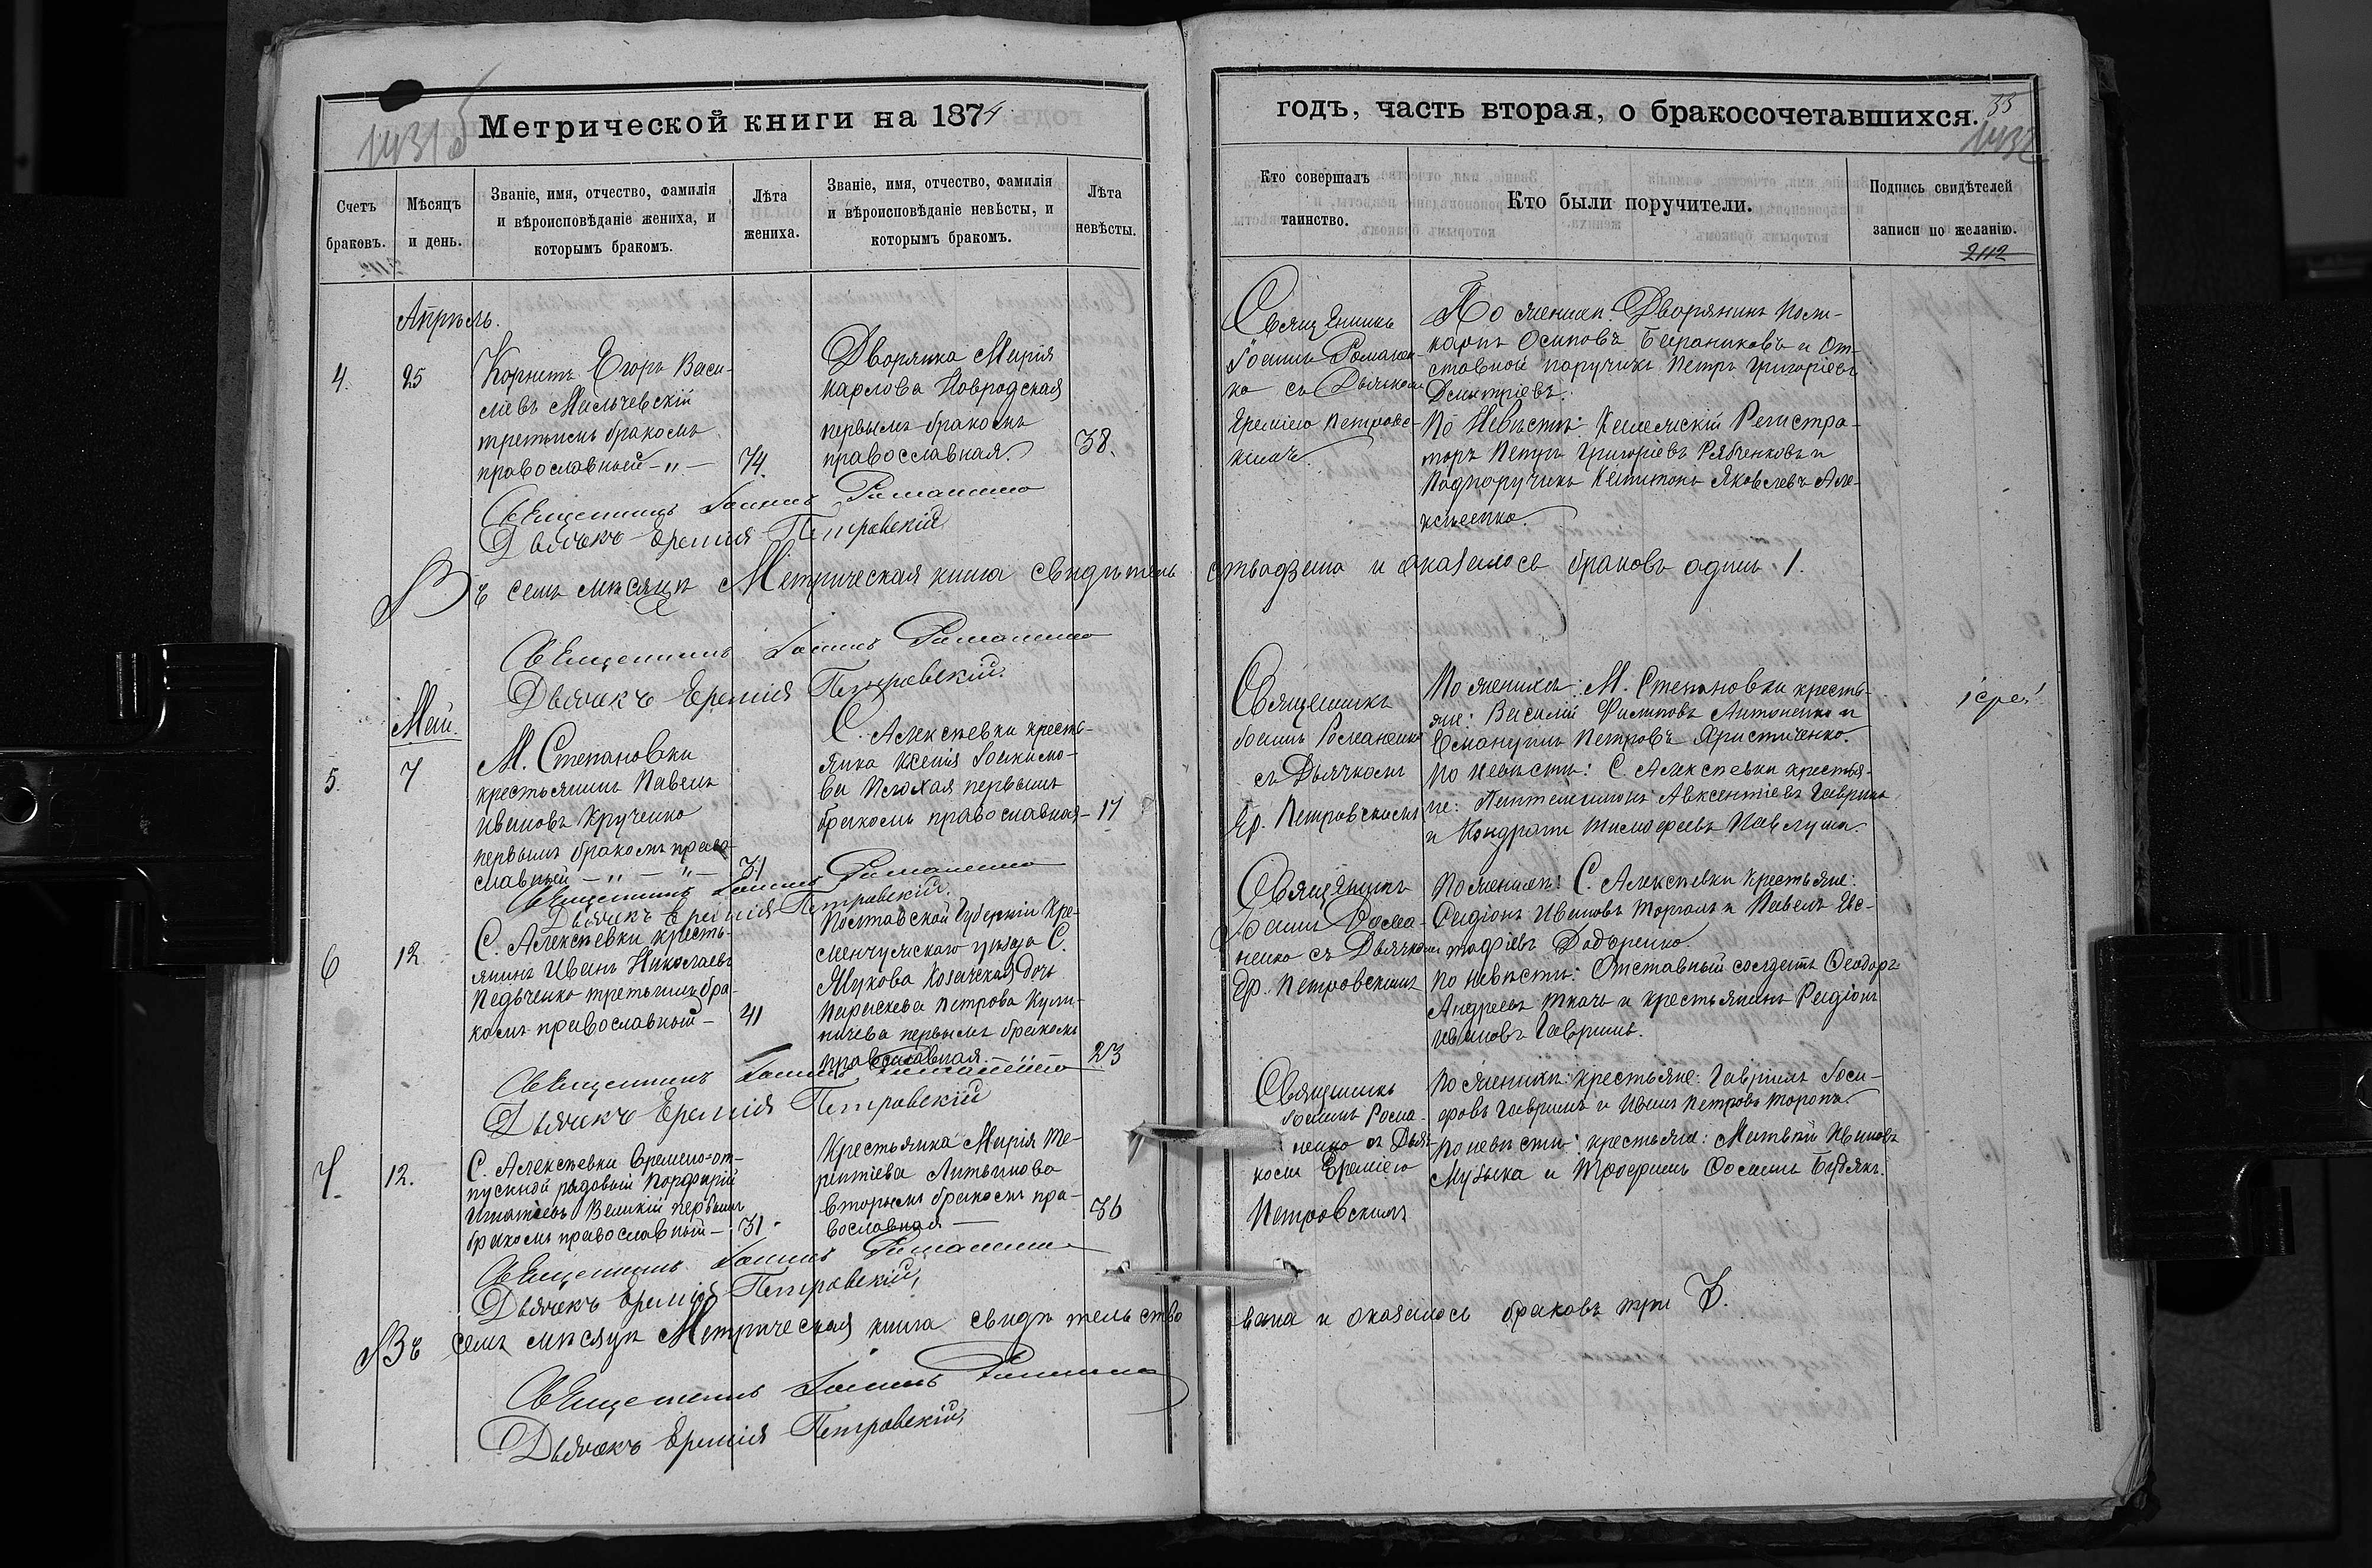 1431 б
Метрической книги на 1874
Счетъ браковъ.
Мѣсяцъ и день.
Званіе, имя, отчество, фамилія
и вѣроисповѣданіе жениха, и
которымъ бракомъ.
Лѣта
жениха.
Званіе, имя, отчество, фамилія
и вѣроисповѣданіе невѣсты, и
которымъ бракомъ.
Лѣта
невѣсты.
Апрѣль.
4.
25
Корнетъ Егоръ Васи-
ліевъ Мильчевскій
третьимъ бракомъ
православный - " -
74.
Дворянка Марія
Карлова Новродская
первымъ бракомъ
православная.
38.
Священникъ Іоаннъ Романенко
Дьячекъ Еремія Петровскій
Въ семъ мѣсяцѣ Метрическая книга свидѣтель
Священникъ Іоаннъ Романенко
Дьячекъ Еремія Петровскій.
Май.
5.
7
М. Степановки
крестьянинъ Павелъ
Ивановъ Крученко
первымъ бракомъ право-
славный - " - " -
31
С. Алексѣевки кресть-
янка Ксенія Іоакимо-
ва первымъ
бракомъ православная -
17
Священникъ Іоаннъ Романенко
Дьячекъ Еремія Петровскій.
6
12
С. Алексѣевки кресть-
янинъ Иванъ Николаевъ
Педьченко третьимъ бра-
комъ православный -
41
Полтавской Губерніи Кре-
менчугскаго уѣзда С.
Жукова Козачекая дочь
Параскева Петрова Кули-
ничева первымъ бракомъ
православная.
23
Священникъ Іоаннъ Романенко
Дьячекъ Еремія Петровскій
7.
12.
С. Алексѣевки Временно-от-
пускной рядовый Порфирій
Игнатіевъ Великій первымъ
бракомъ православный -
31.
Крестьянка Марія Те-
рентіева Литвинова
вторымъ бракомъ пра-
вославная -
36
Священникъ Іоаннъ Романенко
Дьячекъ Еремія Петровскій,
Въ семъ мѣсяцѣ Метрическая книга свидѣтельство
Священникъ Іоаннъ Романенко
Дьячекъ Еремія Петровскій,
годъ, часть вторая, о бракосочетавшихся.
55
1432
Кто совершалъ
таинство.
Кто были поручители.
Подпись свидѣтелей
записи по желанію.
242
Священникъ
Іоаннъ Романен-
ко съ Дьячкомъ
Ереміею Петровс-
кимъ.
По женихѣ: Дворянинъ Поли-
карпъ Осиповъ Бараниковъ и От-
ставной поручикъ Петръ Григоріевъ
Дмитріевъ.
По Невѣстѣ: Колежскій Регистра-
торъ Петръ Григоріевъ Рябченковъ и
Подпоручикъ Капитонъ Яковлевъ Але-
ксѣенко.
ствована и оказалось браковъ одинъ 1.
Священникъ
Іоаннъ Романенко
съ Дьячкомъ
Ер. Петровскимъ
По женихѣ: М. Степановки кресть-
яне: Василій Филиповъ Антоненко и
Емануилъ Петровъ Христиченко.
По невѣстѣ: С. Алексѣевки крестья-
не: Пантелимонъ Авксентіевъ Гаврилъ
и Кондратъ Тимофеевъ Павлуша.
іерей
Священникъ
Іоаннъ Рома-
ненко съ Дьячкомъ
Ер. Петровскимъ
По женихѣ: С. Алексѣевки крестьяне:
Родіонъ Ивановъ Торгалъ и Павелъ Евс-
тафіевъ Додоренко.
По невѣстѣ: Отставный солдатъ Феодоръ
Андреевъ Ткачъ и крестьянинъ Родіонъ
Ивановъ Гавришъ.
Священникъ
Іоаннъ Рома-
ненко съ Дьяч-
комъ Ереміею
Петровскимъ
По женихѣ: крестьяне: Гавріилъ Іоси-
фовъ Гавришъ и Иванъ Петровъ Торопъ.
По невѣстѣ: крестьяне: Матвѣй Ивановъ
Музыка и Трофимъ Фоминъ Будякъ.
вана и оказалось браковъ три 3.